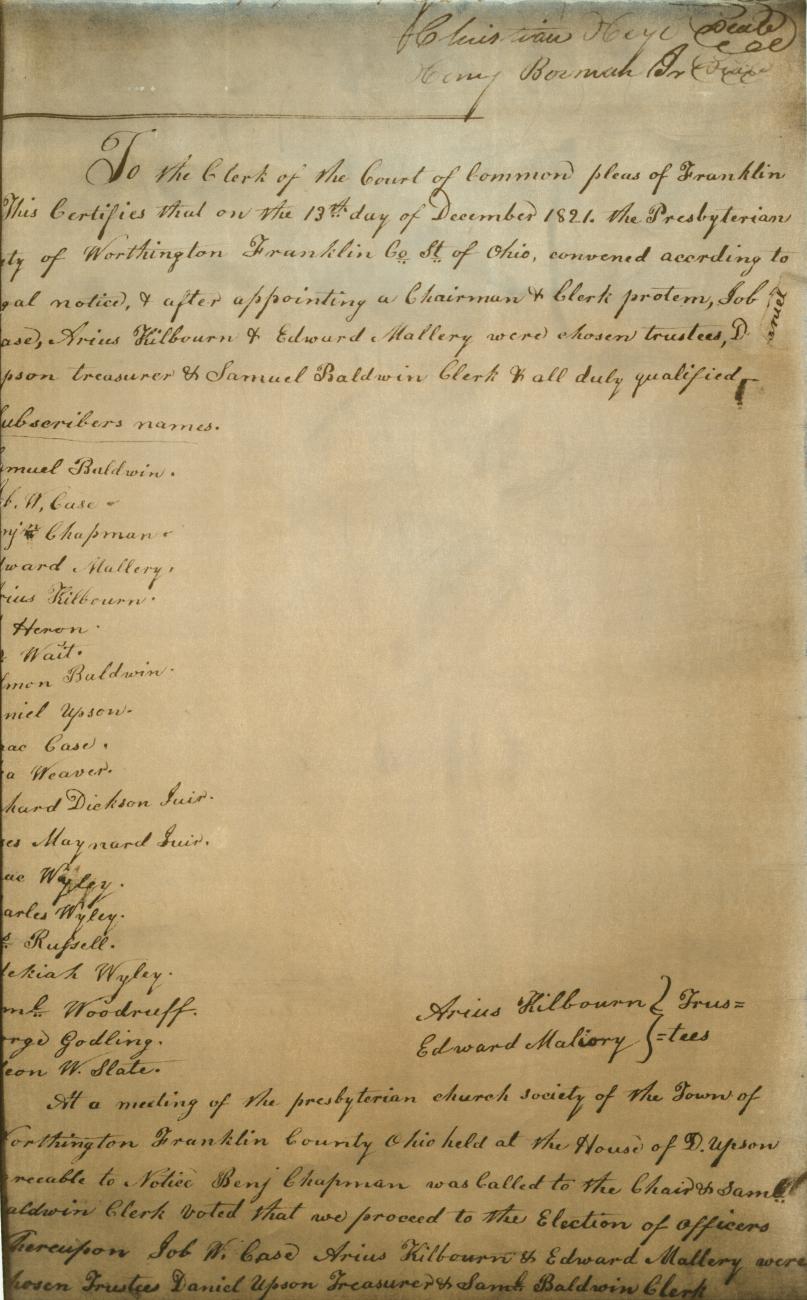 Christian Heyl Seal
Henry Bowman Jr
To the Clerk of the Court of Common pleas of Franklin
This Certifies that on the 13th day of December 1821. the Presbyterian
ty of Worthington Franklin Co St of Ohio, convened according to
gal notice, & after appointing a Chairman & Clerk protem, Job
ase, Arius Kilbourn & Edward Mallery were chosen trustees, Daniel
pson treasurer & Samuel Baldwin Clerk & all duly qualified
ubscribers names.
muel Baldwin.
b. W. Case
njn Chapman
ward Mallery.
rius Kilbourn.
Heron.
Wait.
mon Baldwin.
niel Upson.
aac Case.
a Weaver.
hard Dickson Juir.
ses Maynard Juir.
aac Wyley.
arles Wyley.
s. Russell.
ekiah Wyley.
ml Woodruff.
orge Godling.
eon W. Slate.
Arius Kilbourn } Trus=
Edward Mallory } =tees
At a meeting of the presbyterian church society of the Town of
orthington Franklin County Ohio held at the House of D. Upson
greeable to Notice Benj Chapman was Called to the Chair & Saml
aldwin Clerk voted that we proceed to the Election of officers
Thereupon Job W. Case Arius Kilbourn & Edward Mallery were
hosen Trustees Daniel Upson Treasurer & Saml Baldwin Clerk